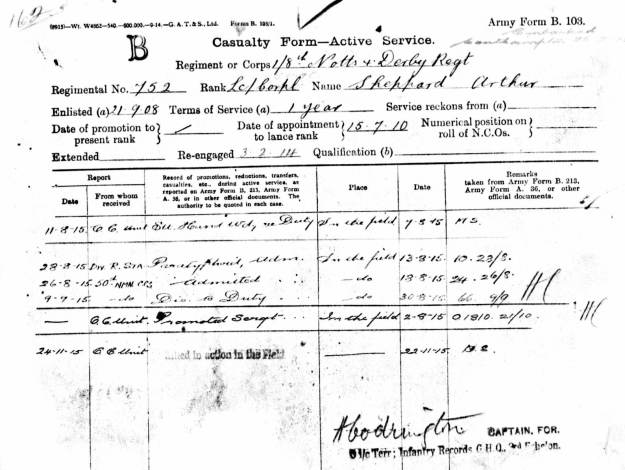 (8915)—Wt. W4862—540.—600,000.—9-14.—G. A. T. & S., Ltd. Forms B. 103/1.
Army Form B. 103.
B
Casualty Form—Active Service.
Regiment or Corps 1/8th Notts & Derby Regt
Regimental No. 752 Rank L/Corpl Name Sheppard Arthur
Enlisted (a) 21.9.08 Terms of Service (a) 1 year Service reckons from (a)
Date of promotion to present rank } Date of appointment to lance rank } 15.7.10 Numerical position on roll of N.C.Os. }
Extended Re-engaged 3.2.14 Qualification (b)
Report
Date From whom received
Record of promotions, reductions, transfers, casualties, etc., during active service, as reported on Army Form B. 213, Army Form A. 36, or in other official documents. The authority to be quoted in each case.
Place
Date
Remarks
taken from Army Form B. 213, Army Form A. 36, or other official documents.
11-8-15 O.C. Unit Duty In the field 7-8-15
28-8-15 In the field 13-8-15 10. 23/8.
26-8-15 Admitted do 18-8-15 24. 26/8.
9-9-15 do Dis. to Duty do 30-8-15 66. 9/9
— O.C. Unit. Promoted Sergt In the field 2-8-15 01810. 21/10.
24-11-15 O.C. Unit Killed in action in the Field 22-11-15
H Codrington
CAPTAIN, FOR.
i/c Terr; Infantry Records G.H.Q., 3rd Echelon.